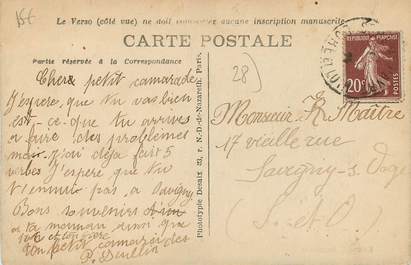 15f
Le Verso (côté vue) ne doit comporter aucune inscription manuscrite.
CARTE POSTALE
Partie réservée à la Correspondance
28)
REPUBLIQUE FRANÇAISE
20c
POSTES
Chere petit camarade
J'espere que tu vas bien
est-ce-que tu arrives
a faire des problèmes
moi j'ai déjà fait 5
verbes J'espere que tu
t'ennuie pas a Savigny
Bons souvenirs
a ta maman ainsi que
ton petit camarade
P.
Phototypie Desaix 23, r. N.-D.-de-Nazareth, Paris.
Monsieur R. Maître
17 vieille rue
Savigny-s. Orge
(S.-et-O.)